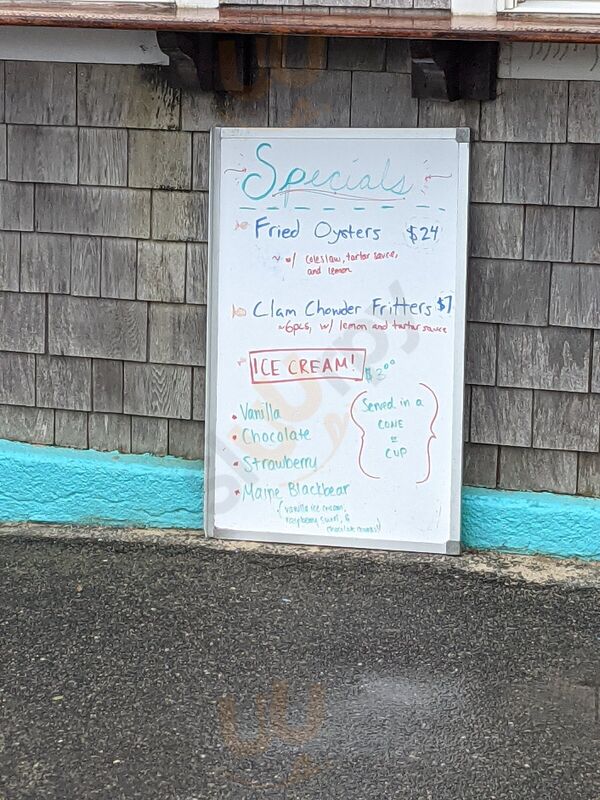 Specials
Fried Oysters $24
~ w/ coleslaw, tartar sauce,
and lemon
Clam Chowder Fritters $7
~6pcs, w/ lemon and tartar sauce
ICE CREAM! $3.00
• Vanilla
• Chocolate
• Strawberry
• Maine Blackbear
(vanilla ice cream,
raspberry swirl, &
chocolate
Served in a
CONE
or
CUP